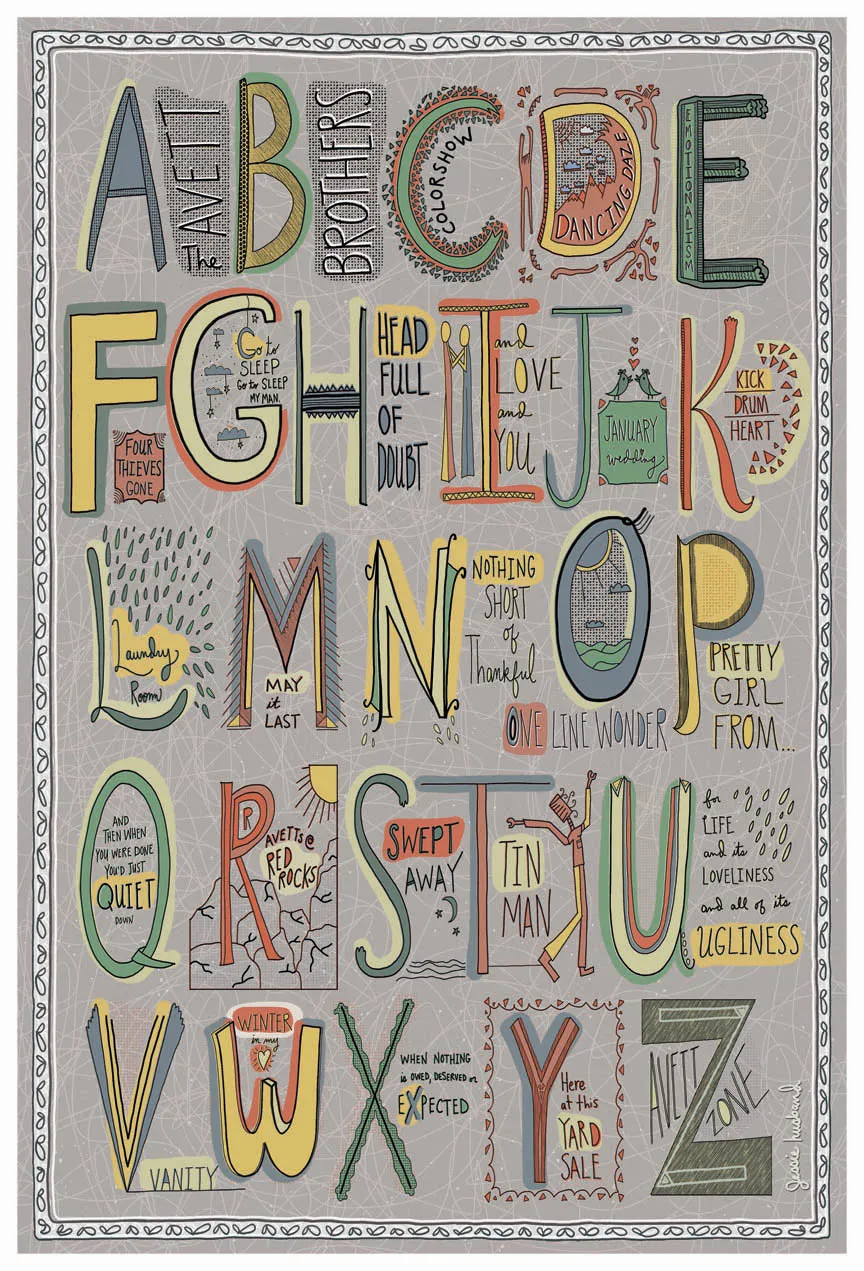 A
The AVETT
B
BROTHERS
C
COLORSHOW
D
DANCING DAZE
E
EMOTIONALISM
F
FOUR
THIEVES
GONE
G
Go to
SLEEP
Go to SLEEP
MY MAN.
H
HEAD
FULL
OF
DOUBT
I
and
LOVE
and
YOU
J
JANUARY
wedding
K
KICK
DRUM
HEART
L
Laundry
Room
M
MAY
it
LAST
N
NOTHING
SHORT
of
Thankful
O
ONE LINE WONDER
P
PRETTY
GIRL
FROM...
Q
AND
THEN WHEN
YOU WERE DONE
YOU'D JUST
QUIET
DOWN
R
R
AVETTS @
RED
ROCKS
S
SWEPT
AWAY
T
TIN
MAN
U
for
LIFE
and its
LOVELINESS
and all of its
UGLINESS
V
VANITY
W
WINTER
in my
X
WHEN NOTHING
is OWED, DESERVED or
EXPECTED
Y
Here
at this
YARD
SALE
Z
AVETT
ZONE